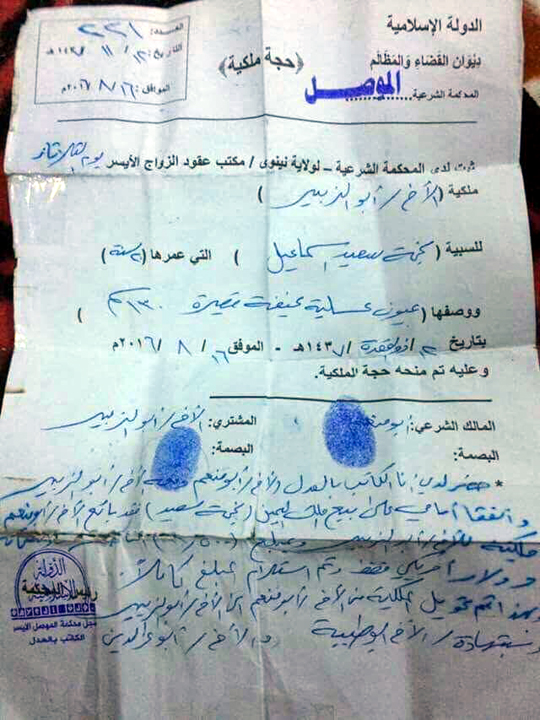 الدولة الإسلامية
ديوان القضاء والمظالم
المحكمة الشرعية الموصل
﴿حجة ملكية﴾
العدد: ٢٣١
التاريخ: ١٣ / ١١ / ١٤٣٧هـ
الموافق: ١٦ / ٨ / ٢٠١٦م
ثبت لدى المحكمة الشرعية – لولاية نينوى / مكتب عقود الزواج الأيسر
ملكية (الأخ / أبو الزبير)
للسبية (نجمة سعيد اسماعيل) التي عمرها (سنة)
ووصفها (عيون عسلية نحيفة قصيرة ١٣٠ سم)
بتاريخ ذو القعدة / ١٤٣٧هـ - الموافق ١٦ / ٨ / ٢٠١٦م
وعليه تم منحه حجة الملكية.
المالك الشرعي: أبو منعم المشتري: الأخ / أبو الزبير
البصمة: البصمة:
* حضر لدي أنا الكاتب بالعدل الأخ / أبو منعم أخ / أبو الزبير
واتفقا أمامي على بيع ملك اليمين (نجمة سعيد) فقد باع الأخ / أبو منعم
ملكيته للأخ / أبو الزبير وبمبلغ
دولار أمريكي فقط وتم استلام المبلغ كاملاً
تحويل الملكية من الأخ / أبو منعم الى الأخ / أبو الزبير
وبشهادة / الأخ و الأخ / أبو عز الدين
الدولة الإسلامية
رئيس المحكمة
محكمة الموصل الأيسر
الكاتب بالعدل